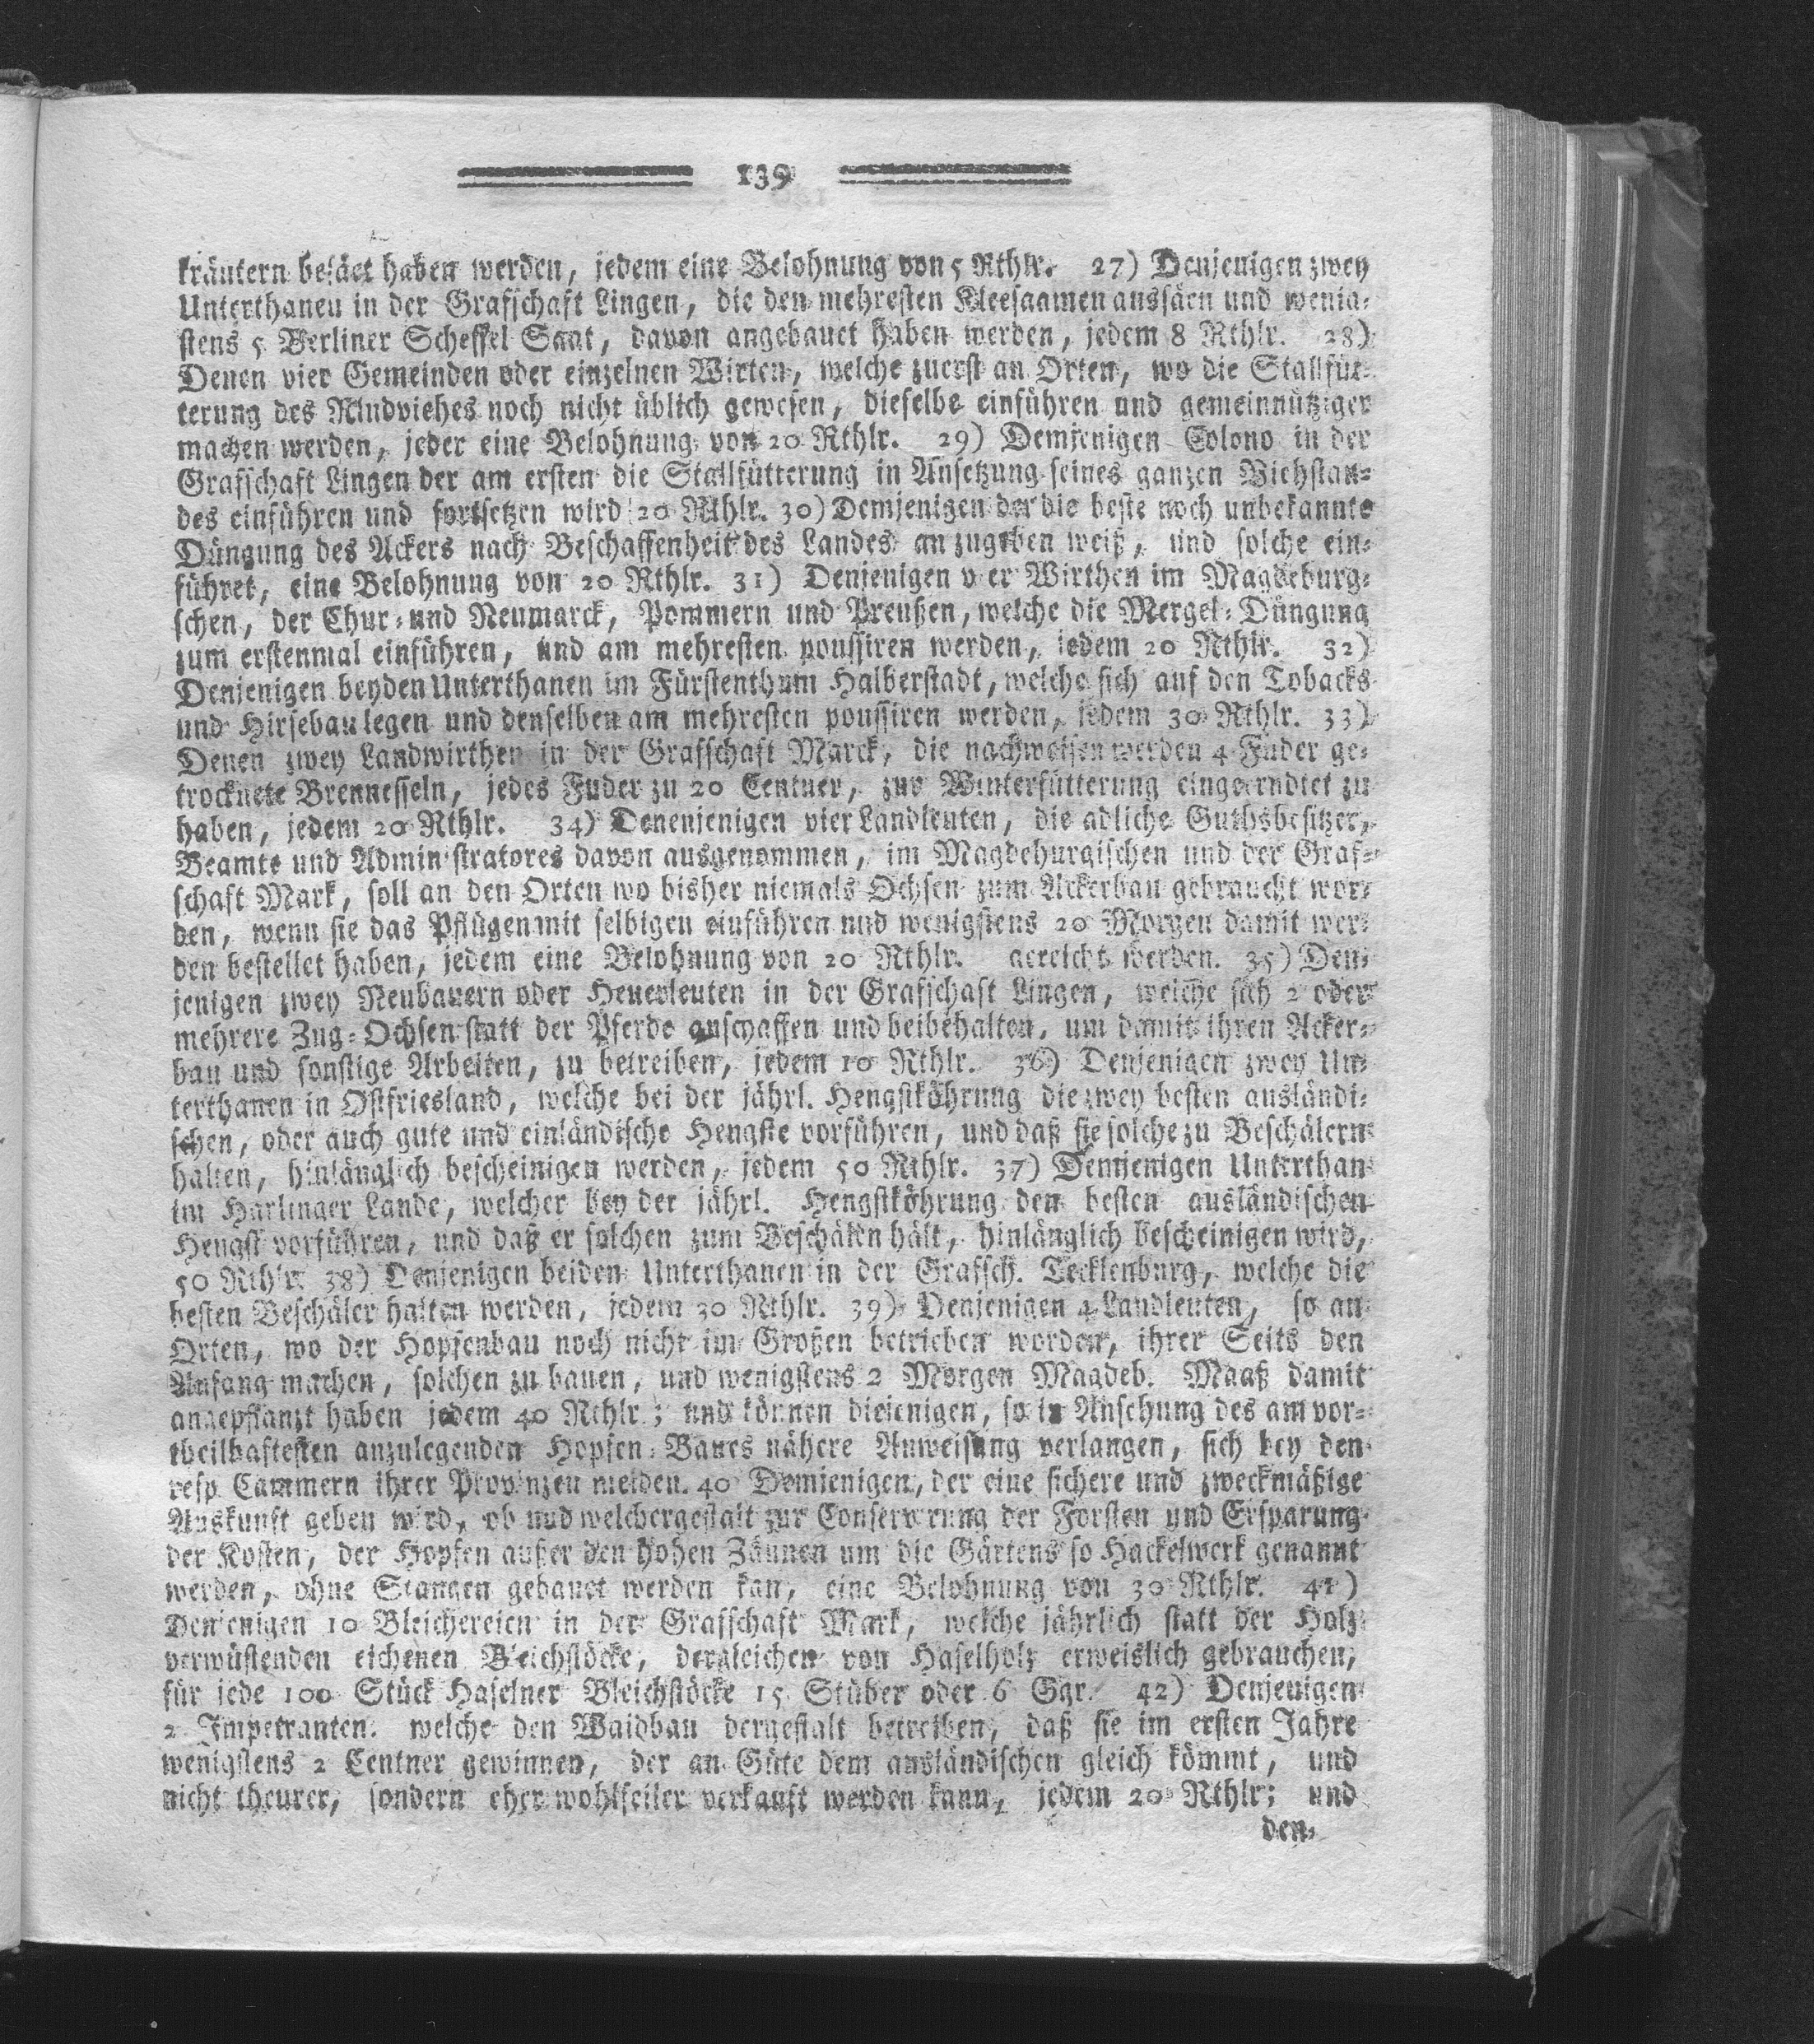 139
kräutern besäet haben werden, jedem eine Belohnung von 5 Rthlr. 27) Denjenigen zwey
Unterthanen in der Grafschaft Lingen, die den mehresten Kleesaamen aussäen und wenig-
stens 5 Berliner Scheffel Saat, davon angebauet haben werden, jedem 8 Rthlr. 28)
Denen vier Gemeinden oder einzelnen Wirten, welche zuerst an Orten, wo die Stallfüt-
terung des Rindviehes noch nicht üblich gewesen, dieselbe einführen und gemeinnütziger
machen werden, jeder eine Belohnung von 20 Rthlr. 29) Demjenigen Colono in der
Grafschaft Lingen der am ersten die Stallfütterung in Ansetzung seines ganzen Viehstan-
des einführen und fortsetzen wird 20 Rthlr. 30) Demjenigen der die beste noch unbekannte
Düngung des Ackers nach Beschaffenheit des Landes anzugeben weiß, und solche ein-
führet, eine Belohnung von 20 Rthlr. 31) Denjenigen vier Wirthen im Magdeburg-
schen, der Chur- und Neumarck, Pommern und Preußen, welche die Mergel-Düngung
zum erstenmal einführen, und am mehresten poussiren werden, jedem 20 Rthlr. 32)
Denjenigen beyden Unterthanen im Fürstenthum Halberstadt, welche sich auf den Tobacks
und Hirsebau legen und denselben am mehresten poussiren werden, jedem 30 Rthlr. 33)
Denen zwey Landwirthen in der Grafschaft Marck, die nachweisen werden 4 Fuder ge-
trocknete Brennesseln, jedes Fuder zu 20 Centner, zur Winterfütterung eingeerndtet zu
haben, jedem 20 Rthlr. 34) Denenjenigen vier Landleuten, die adliche Guthsbesitzer,
Beamte und Administratores davon ausgenommen, im Magdehurgischen und der Graf-
schaft Mark, soll an den Orten wo bisher niemals Ochsen zum Ackerbau gebraucht wor-
den, wenn sie das Pflügen mit selbigen einführen und wenigstens 20 Morgen damit wer-
den bestellet haben, jedem eine Belohnung von 20 Rthlr. gereicht werden. 35) Den-
jenigen zwey Neubauern oder Heuerleuten in der Grafschaft Lingen, welche sich 2 oder
mehrere Zug-Ochsen statt der Pferde anschaffen und beibehalten, um damit ihren Acker-
bau und sonstige Arbeiten, zu betreiben, jedem 10 Rthlr. 36) Denjenigen zwey Un-
terthanen in Ostfriesland, welche bei der jährl. Hengstköhrung die zwey besten ausländi-
schen, oder auch gute und einländische Hengste vorführen, und daß sie solche zu Beschälern
halten, hinlänglich bescheinigen werden, jedem 50 Rthlr. 37) Demjenigen Unterthan
im Harlinger Lande, welcher bey der jährl. Hengstköhrung den besten ausländischen
Hengst vorführen, und daß er solchen zum Beschälen hält, hinlänglich bescheinigen wird,
50 Rthlr. 38) Denjenigen beiden Unterthanen in der Grafsch. Tecklenburg, welche die
besten Beschäler halten werden, jedem 30 Rthlr. 39) Denjenigen 4 Landleuten, so an
Orten, wo der Hopfenbau noch nicht im Großen betrieben worden, ihrer Seits den
Anfang machen, solchen zu bauen, und wenigstens 2 Morgen Magdeb. Maaß damit
angepflanzt haben jedem 40 Rthlr.; und können diejenigen, so in Ansehung des am vor-
theilhaftesten anzulegenden Hopfen-Baues nähere Anweisung verlangen, sich bey den
resp. Cammern ihrer Provinzen melden. 40 Demjenigen, der eine sichere und zweckmäßige
Auskunft geben wird, ob und welchergestalt zur Conservirung der Forsten und Ersparung
der Kosten, der Hopfen außer den hohen Zäunen um die Gärtens so Hackelwerk genannt
werden, ohne Stangen gebauet werden kan, eine Belohnung von 30 Rthlr. 41)
Denjenigen 10 Bleichereien in der Grafschaft Mark, welche jährlich statt der Holz
verwüstenden eichenen Bleichstöcke, dergleichen von Haselholz erweislich gebrauchen,
für jede 100 Stück Haselner Bleichstöcke 15 Stüber oder 6 Ggr. 42) Denjenigen
2 Impetranten. welche den Waidbau dergestalt betreiben, daß sie im ersten Jahre
wenigstens 2 Centner gewinnen, der an Güte dem ausländischen gleich kömmt, und
nicht theurer, sondern eher wohlfeiler verkauft werden kann, jedem 20 Rthlr; und
den-